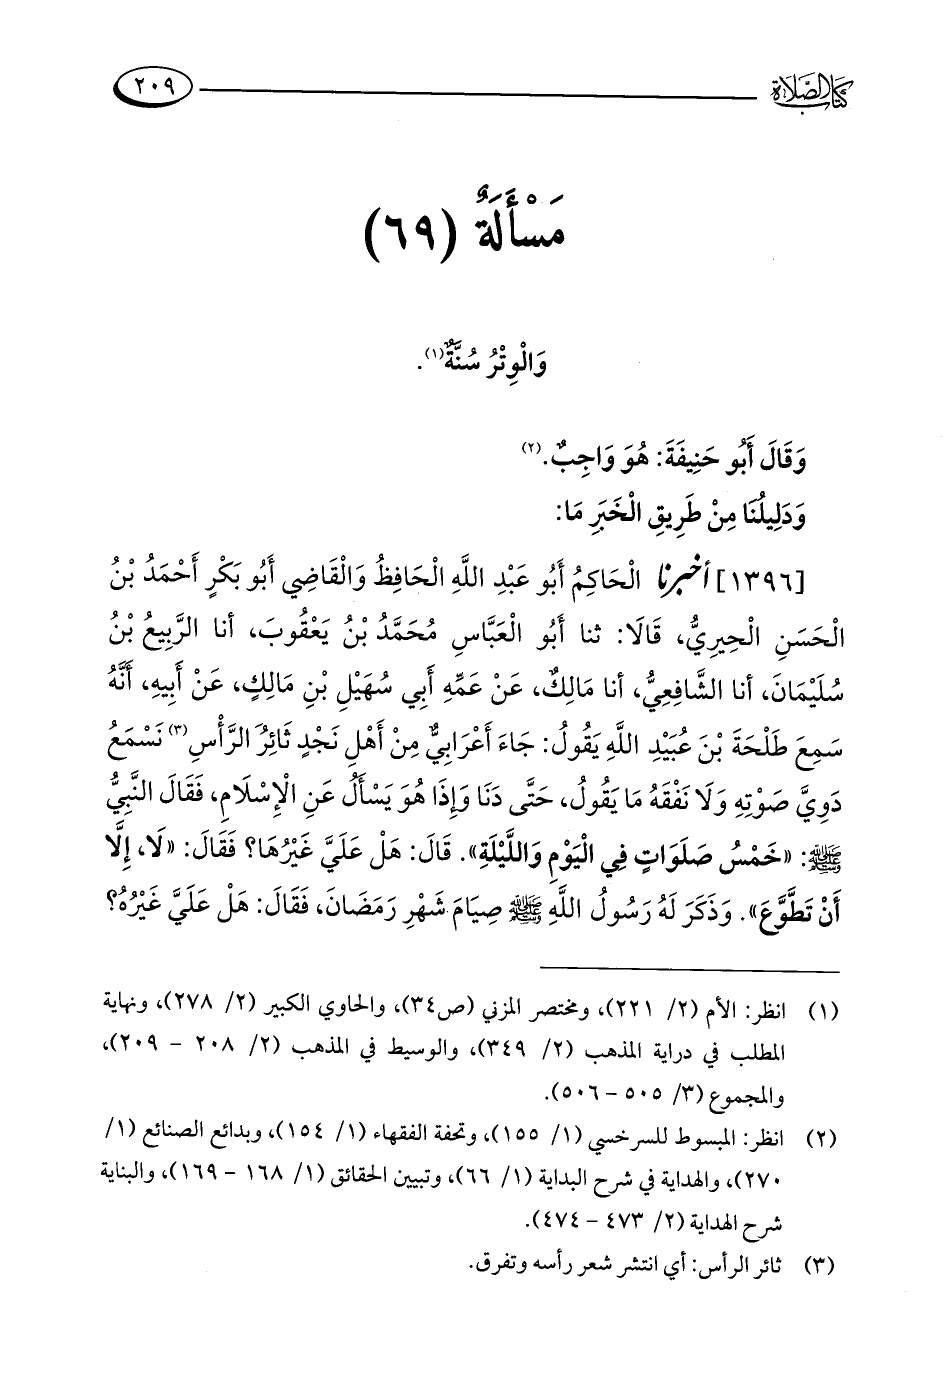 كتاب الصلاة ٢٠٩
مَسْأَلَةٌ (٦٩)
وَالْوِتْرُ سُنَّةٌ(١).
وَقَالَ أَبُو حَنِيفَةَ: هُوَ وَاجِبٌ.(٢)
وَدَلِيلُنَا مِنْ طَرِيقِ الْخَبَرِ مَا:
[١٣٩٦] أخبرنا الْحَاكِمُ أَبُو عَبْدِ اللَّهِ الْحَافِظُ وَالْقَاضِي أَبُو بَكْرٍ أَحْمَدُ بْنُ
الْحَسَنِ الْحِيرِيُّ، قَالَا: ثنا أَبُو الْعَبَّاسِ مُحَمَّدُ بْنُ يَعْقُوبَ، أنا الرَّبِيعُ بْنُ
سُلَيْمَانَ، أنا الشَّافِعِيُّ، أنا مَالِكٌ، عَنْ عَمِّهِ أَبِي سُهَيْلِ بْنِ مَالِكٍ، عَنْ أَبِيهِ، أَنَّهُ
سَمِعَ طَلْحَةَ بْنَ عُبَيْدِ اللَّهِ يَقُولُ: جَاءَ أَعْرَابِيٌّ مِنْ أَهْلِ نَجْدٍ ثَائِرُ الرَّأْسِ(٣) نَسْمَعُ
دَوِيَّ صَوْتِهِ وَلَا نَفْقَهُ مَا يَقُولُ، حَتَّى دَنَا وَإِذَا هُوَ يَسْأَلُ عَنِ الْإِسْلَامِ، فَقَالَ النَّبِيُّ
ﷺ: «خَمْسُ صَلَوَاتٍ فِي الْيَوْمِ وَاللَّيْلَةِ». قَالَ: هَلْ عَلَيَّ غَيْرُهَا؟ فَقَالَ: «لَا، إِلَّا
أَنْ تَطَّوَّعَ». وَذَكَرَ لَهُ رَسُولُ اللَّهِ ﷺ صِيَامَ شَهْرِ رَمَضَانَ، فَقَالَ: هَلْ عَلَيَّ غَيْرُهُ؟
(١) انظر: الأم (٢/ ٢٢١)، ومختصر المزني (ص٣٤)، والحاوي الكبير (٢/ ٢٧٨)، ونهاية
المطلب في دراية المذهب (٢/ ٣٤٩)، والوسيط في المذهب (٢/ ٢٠٨ - ٢٠٩)،
والمجموع (٣/ ٥٠٥ - ٥٠٦).
(٢) انظر: المبسوط للسرخسي (١/ ١٥٥)، وتحفة الفقهاء (١/ ١٥٤)، وبدائع الصنائع (١/
٢٧٠)، والهداية في شرح البداية (١/ ٦٦)، وتبيين الحقائق (١/ ١٦٨ - ١٦٩)، والبناية
شرح الهداية (٢/ ٤٧٣ - ٤٧٤).
(٣) ثائر الرأس: أي انتشر شعر رأسه وتفرق.